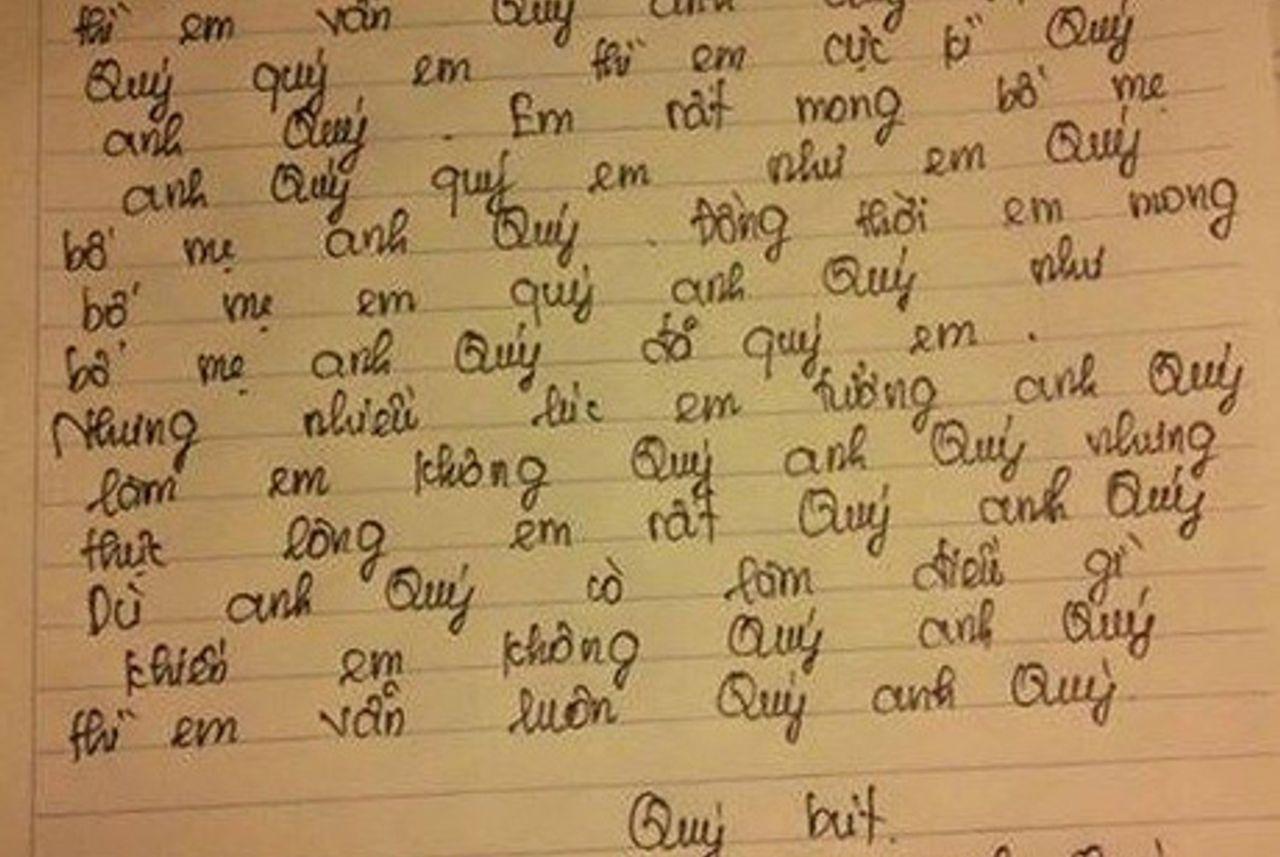 thì em vẫn Quý anh
Quý quý em thì em cực kì Quý
anh Quý . Em rất mong bố mẹ
anh Quý quý em như em Quý
bố mẹ anh Quý . Đồng thời em mong
bố mẹ em quý anh Quý như
bố mẹ anh Quý đã quý em .
Nhưng nhiều lúc em tưởng anh Quý
làm em không Quý anh Quý nhưng
thực lòng em rất Quý anh Quý
Dù anh Quý có làm điều gì
khiến em không Quý anh Quý
thì em vẫn luôn Quý anh Quý.
Quý bút.